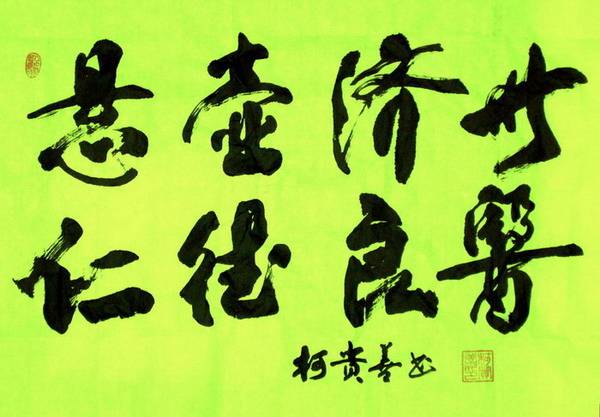 悬壶济世
仁德良醫
柯贵善书